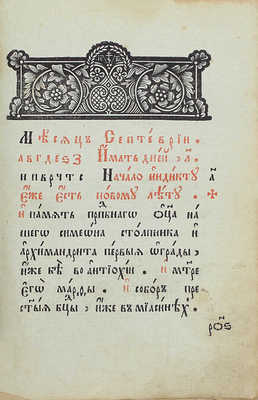 Мѣсяцъ Септеврїи.
а в г д е ѕ з Имать дній л҃.
и і в р ч т с Начало индикту а҃
еже есть новому лѣту.
и память прпбнагѡ ѻц҃а на
шегѡ симеѡна столпника и
архимандрита первыѧ ѡграды;
иже бѣ во антїохїи. и мт҃ре
егѡ марѳы. и соборъ пре
стыѧ бц҃ы; иже въ мїасинѣхъ.